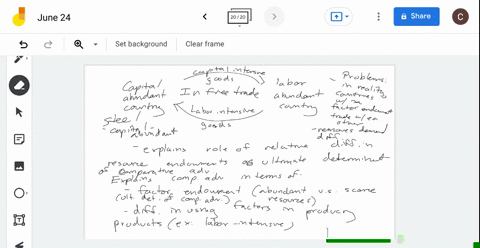 June 24
20 / 20
Share
C
Set background
Clear frame
capital intensive
goods
Capital
abundant
country
In free trade
labor
abundant
country
Labor intensive
goods
steel
capital-
abundant
- Problems:
in reality
countries
factor endowment
trade w/ ea
other
- removes demand
diff
- explains role of relative diff. in
resource endowments as ultimate determinant
of comparative adv
Explains comp. adv in terms of:
- factor endowment (abundant v.s. scarce
(ult. det. of comp. adv.) resources)
- diff. in using factors in producing
products (ex: labor-intensive)